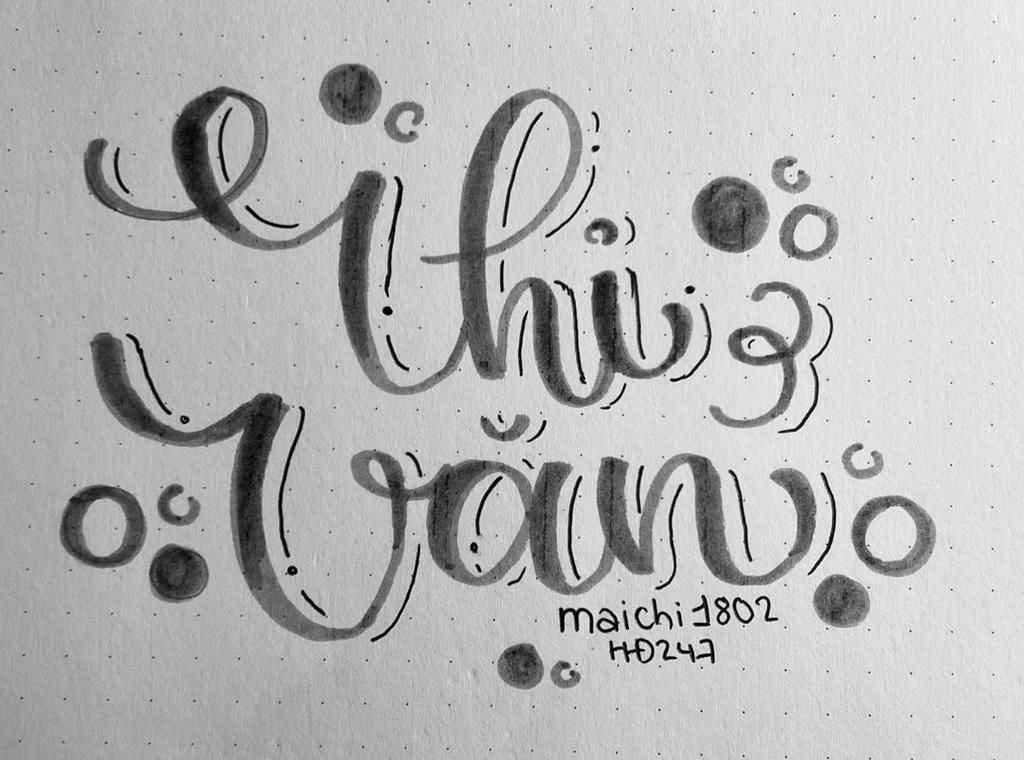 Thi 3
Văn
maichi1802
HĐ247